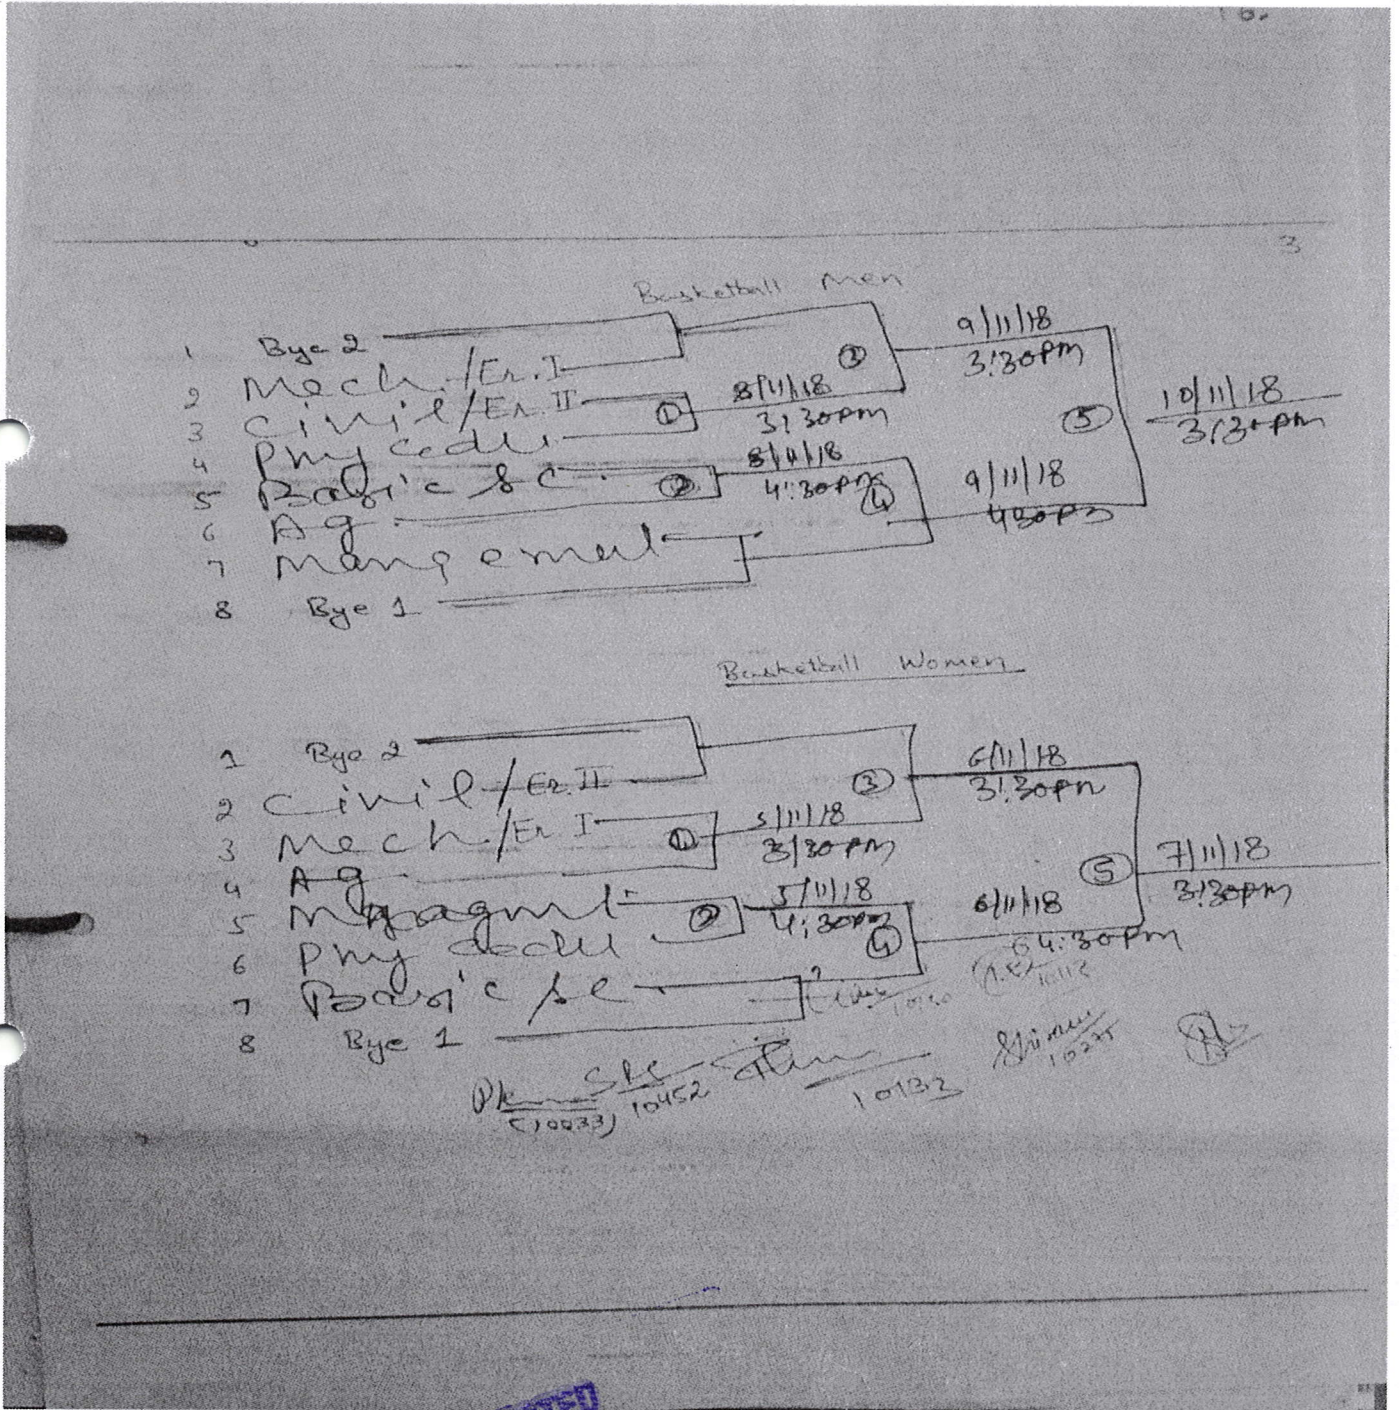 16.
3
Basketball Men
1 Bye 2
2 Mech./Er. I
3 Civil/Er. II
4 Phy edu
5 Basic Sc.
6 Ag.
7 Mangement
8 Bye 1
① 8/11/18 3:30pm
② 8/11/18 4:30pm
③ 9/11/18 3:30pm
④ 9/11/18 4:30pm
⑤ 10/11/18 3:30pm
Basketball Women
1 Bye 2
2 Civil/Er. II
3 Mech./Er. I
4 Ag
5 Managmt
6 Phy edu
7 Basic Sc
8 Bye 1
① 5/11/18 3:30pm
② 5/11/18 4:30pm
③ 6/11/18 3:30pm
④ 6/11/18 4:30pm
⑤ 7/11/18 3:30pm
10113
(10033) 10452 10132